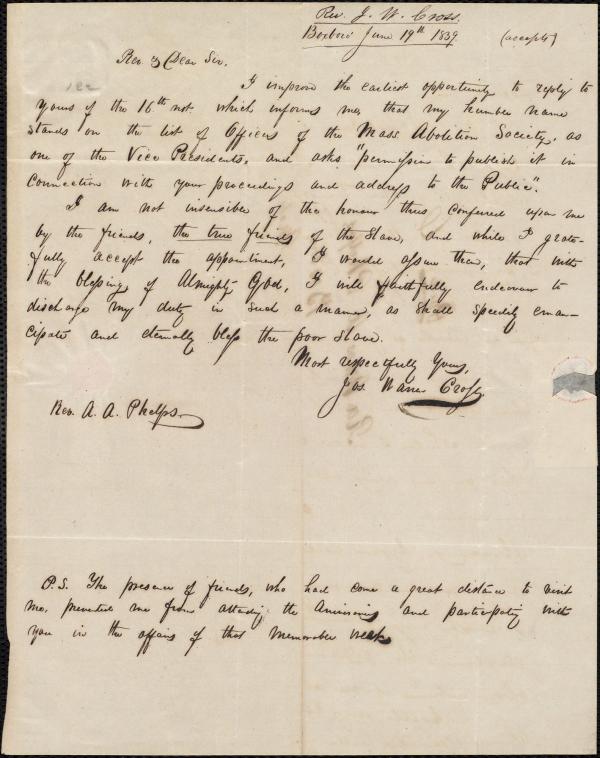 Rev. J. W. Cross.
Boxboro' June 19th 1839 (accepts)
Rev. & Dear Sir.
I improve the earliest opportunity to reply to
yours of the 16th inst. which informs me, that my humble name
stands on the list of Officers of the Mass Abolition Society, as
one of the Vice Presidents, and asks "permission to publish it in
connection with your proceedings and address to the Public".
I am not insensible of the honour thus conferred upon me
by the friends, the true friends of the Slave, and while I grate-
fully accept the appointment, I would assure them, that with
the blessing of Almighty God, I will faithfully endeavour to
discharge my duty in such a manner, as shall speedily eman-
cipate and eternally bless the poor slave.
Most respectfully Yours,
Jos. Warren Cross.
Rev. A. A. Phelps.
P.S. The presence of friends, who had come a great distance to visit
me, prevented me from attending the Anniversaries and participating with
you in the affairs of that memorable week.